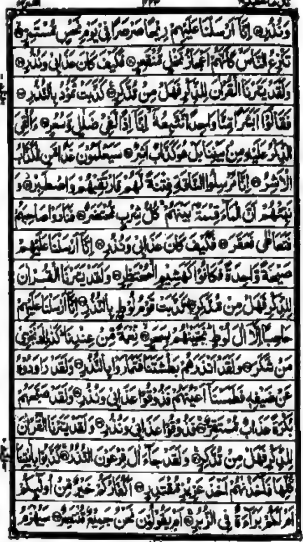 وَنُذُرِ ۝ اِنَّاۤ اَرْسَلْنَا عَلَيْهِمْ رِيْحًا صَرْصَرًا فِيْ يَوْمِ نَحْسٍ مُّسْتَمِرٍّ ۝
تَنْزِعُ النَّاسَ كَاَنَّهُمْ اَعْجَازُ نَخْلٍ مُّنْقَعِرٍ ۝ فَكَيْفَ كَانَ عَذَابِيْ وَنُذُرِ ۝
وَلَقَدْ يَسَّرْنَا الْقُرْاٰنَ لِلذِّكْرِ فَهَلْ مِنْ مُّدَّكِرٍ ۝ كَذَّبَتْ ثَمُوْدُ بِالنُّذُرِ ۝
فَقَالُوْۤا اَبَشَرًا مِّنَّا وَاحِدًا نَّتَّبِعُهٗۤ اِنَّاۤ اِذًا لَّفِيْ ضَلٰلٍ وَّسُعُرٍ ۝ ءَاُلْقِيَ
الذِّكْرُ عَلَيْهِ مِنْۢ بَيْنِنَا بَلْ هُوَ كَذَّابٌ اَشِرٌ ۝ سَيَعْلَمُوْنَ غَدًا مَّنِ الْكَذَّابُ
الْاَشِرُ ۝ اِنَّا مُرْسِلُوا النَّاقَةِ فِتْنَةً لَّهُمْ فَارْتَقِبْهُمْ وَاصْطَبِرْ ۝ وَ
نَبِّئْهُمْ اَنَّ الْمَآءَ قِسْمَةٌۢ بَيْنَهُمْ كُلُّ شِرْبٍ مُّحْتَضَرٌ ۝ فَنَادَوْا صَاحِبَهُمْ
فَتَعَاطٰى فَعَقَرَ ۝ فَكَيْفَ كَانَ عَذَابِيْ وَنُذُرِ ۝ اِنَّاۤ اَرْسَلْنَا عَلَيْهِمْ
صَيْحَةً وَّاحِدَةً فَكَانُوْا كَهَشِيْمِ الْمُحْتَظِرِ ۝ وَلَقَدْ يَسَّرْنَا الْقُرْاٰنَ
لِلذِّكْرِ فَهَلْ مِنْ مُّدَّكِرٍ ۝ كَذَّبَتْ قَوْمُ لُوْطٍۭ بِالنُّذُرِ ۝ اِنَّاۤ اَرْسَلْنَا عَلَيْهِمْ
حَاصِبًا اِلَّاۤ اٰلَ لُوْطٍ نَجَّيْنٰهُمْ بِسَحَرٍ ۝ نِّعْمَةً مِّنْ عِنْدِنَا كَذٰلِكَ نَجْزِيْ
مَنْ شَكَرَ ۝ وَلَقَدْ اَنْذَرَهُمْ بَطْشَتَنَا فَتَمَارَوْا بِالنُّذُرِ ۝ وَلَقَدْ رَاوَدُوْهُ
عَنْ ضَيْفِهٖ فَطَمَسْنَاۤ اَعْيُنَهُمْ فَذُوْقُوْا عَذَابِيْ وَنُذُرِ ۝ وَلَقَدْ صَبَّحَهُمْ
بُكْرَةً عَذَابٌ مُّسْتَقِرٌّ ۝ فَذُوْقُوْا عَذَابِيْ وَنُذُرِ ۝ وَلَقَدْ يَسَّرْنَا الْقُرْاٰنَ
لِلذِّكْرِ فَهَلْ مِنْ مُّدَّكِرٍ ۝ وَلَقَدْ جَآءَ اٰلَ فِرْعَوْنَ النُّذُرُ ۝ كَذَّبُوْا بِاٰيٰتِنَا
كُلِّهَا فَاَخَذْنٰهُمْ اَخْذَ عَزِيْزٍ مُّقْتَدِرٍ ۝ اَكُفَّارُكُمْ خَيْرٌ مِّنْ اُولٰٓئِكُمْ
اَمْ لَكُمْ بَرَآءَةٌ فِي الزُّبُرِ ۝ اَمْ يَقُوْلُوْنَ نَحْنُ جَمِيْعٌ مُّنْتَصِرٌ ۝ سَيُهْزَمُ